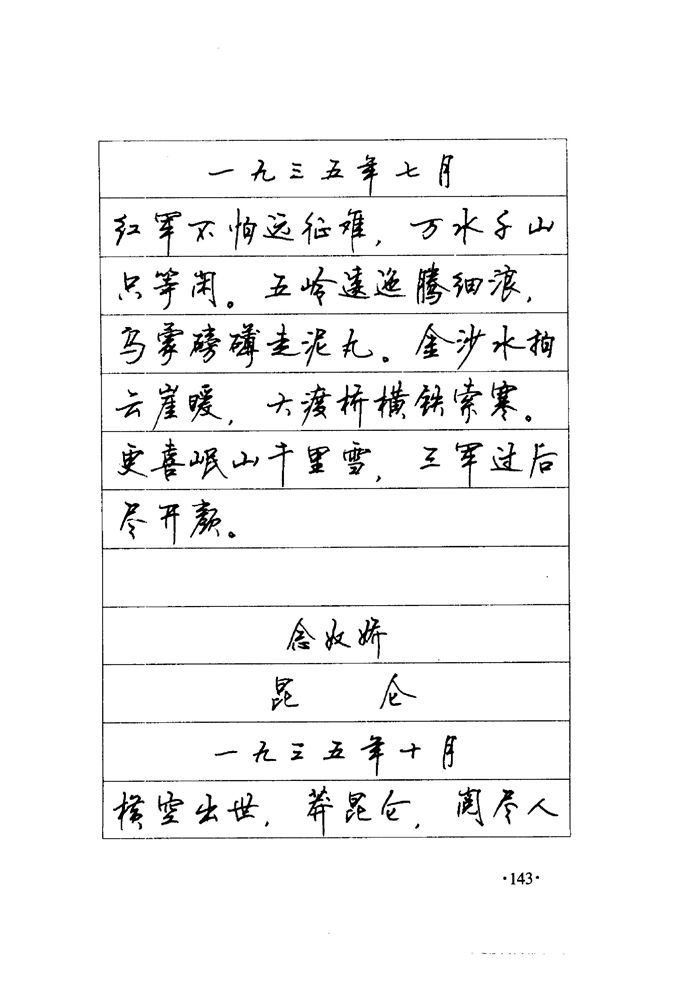 一九三五年七月
红军不怕远征难，万水千山
只等闲。五岭逶迤腾细浪，
乌蒙磅礴走泥丸。金沙水拍
云崖暖，大渡桥横铁索寒。
更喜岷山千里雪，三军过后
尽开颜。
念奴娇
昆 仑
一九三五年十月
横空出世，莽昆仑，阅尽人
·143·